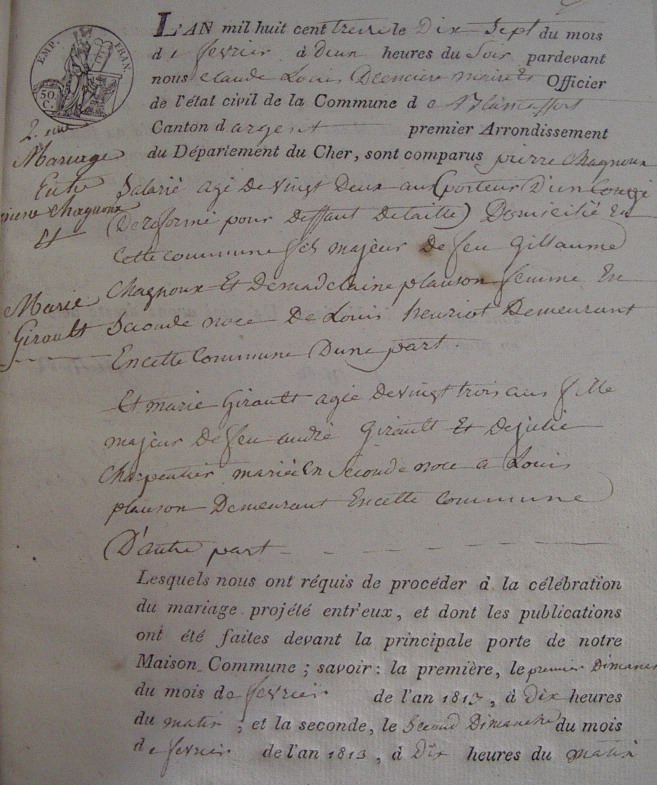 EMP. FRAN.
50 C.
L'AN mil huit cent treize le Dix Sept du mois
de fevrier à Dun heures du Soir pardevant
nous Claude Louis maire Officier
de l'état civil de la Commune de
Canton d argent premier Arrondissement
du Département du Cher, sont comparus pierre Chagnoux
Salarié agé de vingt Deux ans (porteur D'un Congé
De reformé pour Deffaut de taille) Domicilié En
Cette commune fils majeur De feu Gillaume
Chagnoux Et De madelaine plauson femme En
Seconde noce De Louis henriot Demeurant
En cette Commune D'une part.
Et marie Girault agée De vingt trois ans fille
majeur De feu andré Girault Et De julie
Charpentier mariée En Seconde noce a Louis
plauson Demeurant En cette Commune
D'autre part
Lesquels nous ont réquis de procéder à la célébration
du mariage projété entr'eux, et dont les publications
ont été faites devant la principale porte de notre
Maison Commune; savoir: la première, le premier Dimanche
du mois de fevrier de l'an 1813, à Dix heures
du matin; et la seconde, le Second Dimanche du mois
de fevrier de l'an 1813, à Dix heures du matin
Mariage
Entre
pierre Chagnoux
Et
Marie
Girault